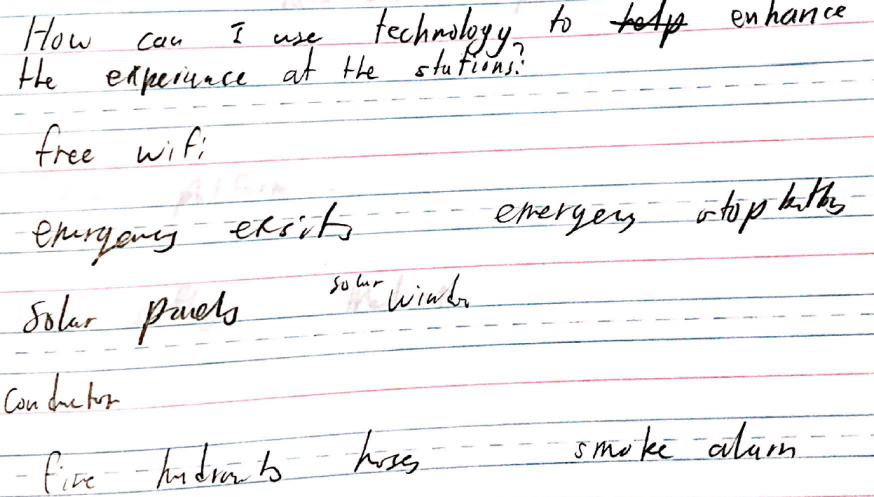 How can I use technology to help enhance
the experiance at the stations?
free wifi
emergency exsits emergency stop buttons
Solar panels solar window
Conductor
fire hydrants hoses smoke alarm